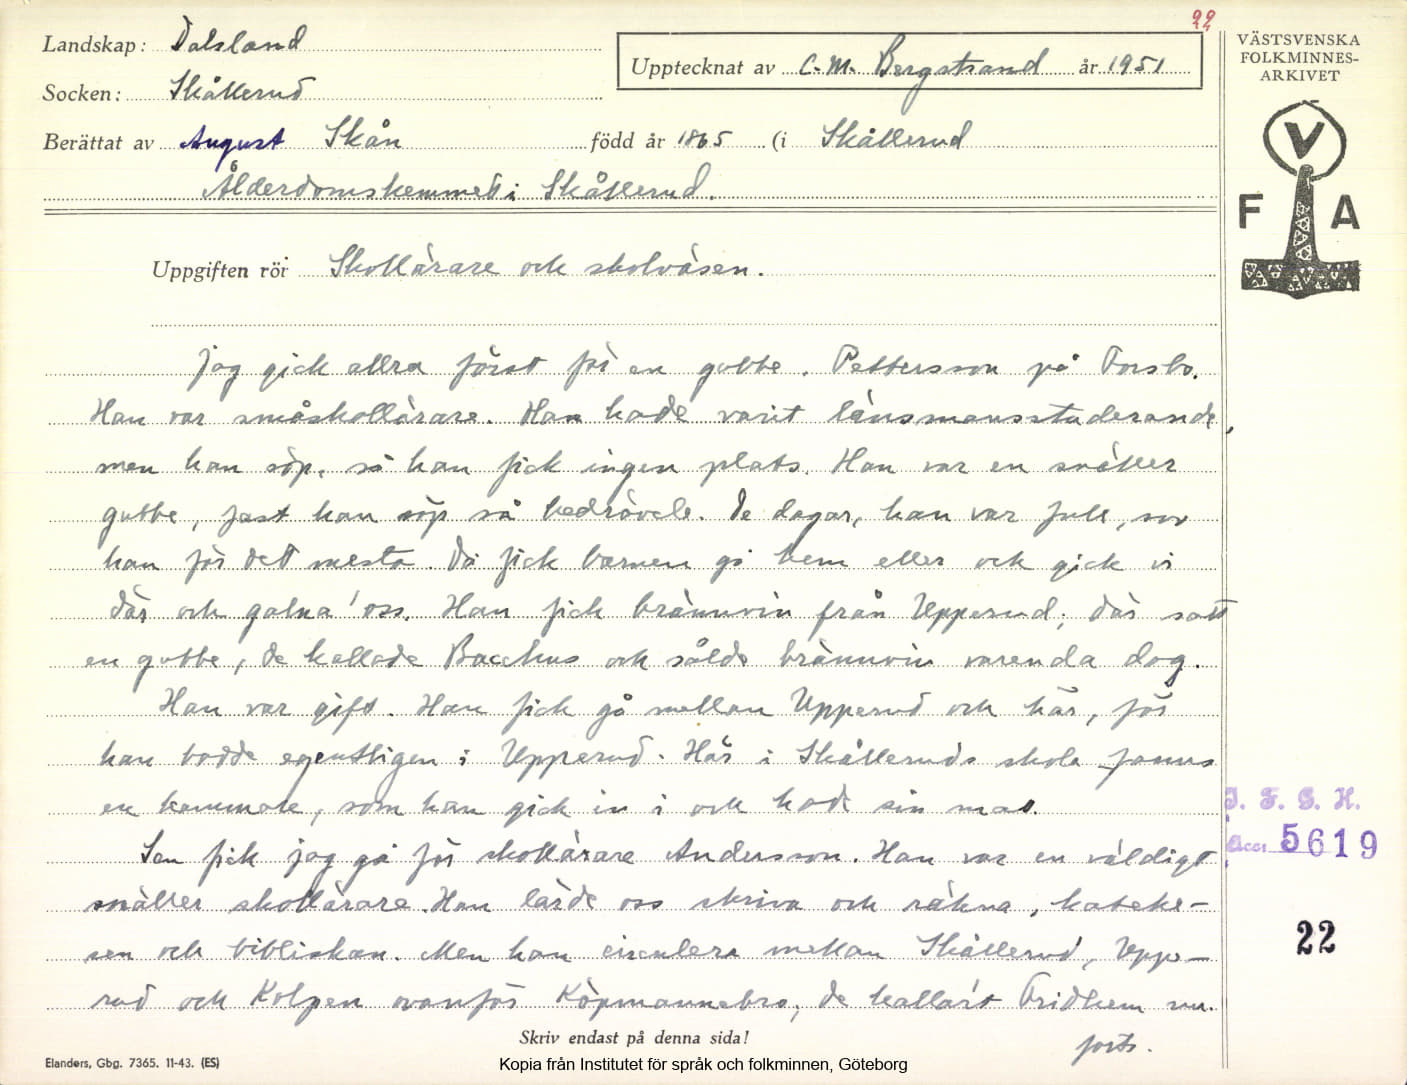 22
Landskap: Dalsland
Upptecknat av C.M. Bergstrand år 1951
VÄSTSVENSKA
FOLKMINNES-
ARKIVET
Socken: Skållerud
Berättat av August Skån född år 1865 (i Skållerud
Ålderdomshemmet i Skållerud.
V
F A
Uppgiften rör Skollärare och skolväsen.
Jag gick allra först för en gubbe. Pettersson på Forsbo.
Han var småskollärare. Han hade varit länsmansstuderande,
men han söp, så han fick ingen plats. Han var en snäller
gubbe, fast han söp så bedrövele. De dagar, han var full, sov
han för det mesta. Då fick barnen gå hem eller och gick vi
där och galna' oss. Han fick brännvin från Upperud; där satt
en gubbe, de kallade Bacchus och sålde brännvin varenda dag.
Han var gift. Han fick gå mellan Upperud och här, för
han bodde egentligen i Upperud. Här i Skålleruds skola fanns
en kammare, som han gick in i och hade sin mat.
Sen fick jag gå för skollärare Andersson. Han var en väldigt
snäller skollärare. Han lärde oss skriva och räkna, kateke-
sen och bibliskan. Men han cirkulera mellan Skållerud, Uppe-
rud och Kolpen ovanför Köpmannebro, de kalla't Fridhem nu.
forts.
I. F. G. H.
Acc. 5619
22
Skriv endast på denna sida!
Elanders, Gbg. 7365. 11-43. (ES)
Kopia från Institutet för språk och folkminnen, Göteborg